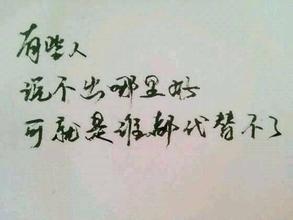 有些人
说不出哪里好
可就是谁都代替不了